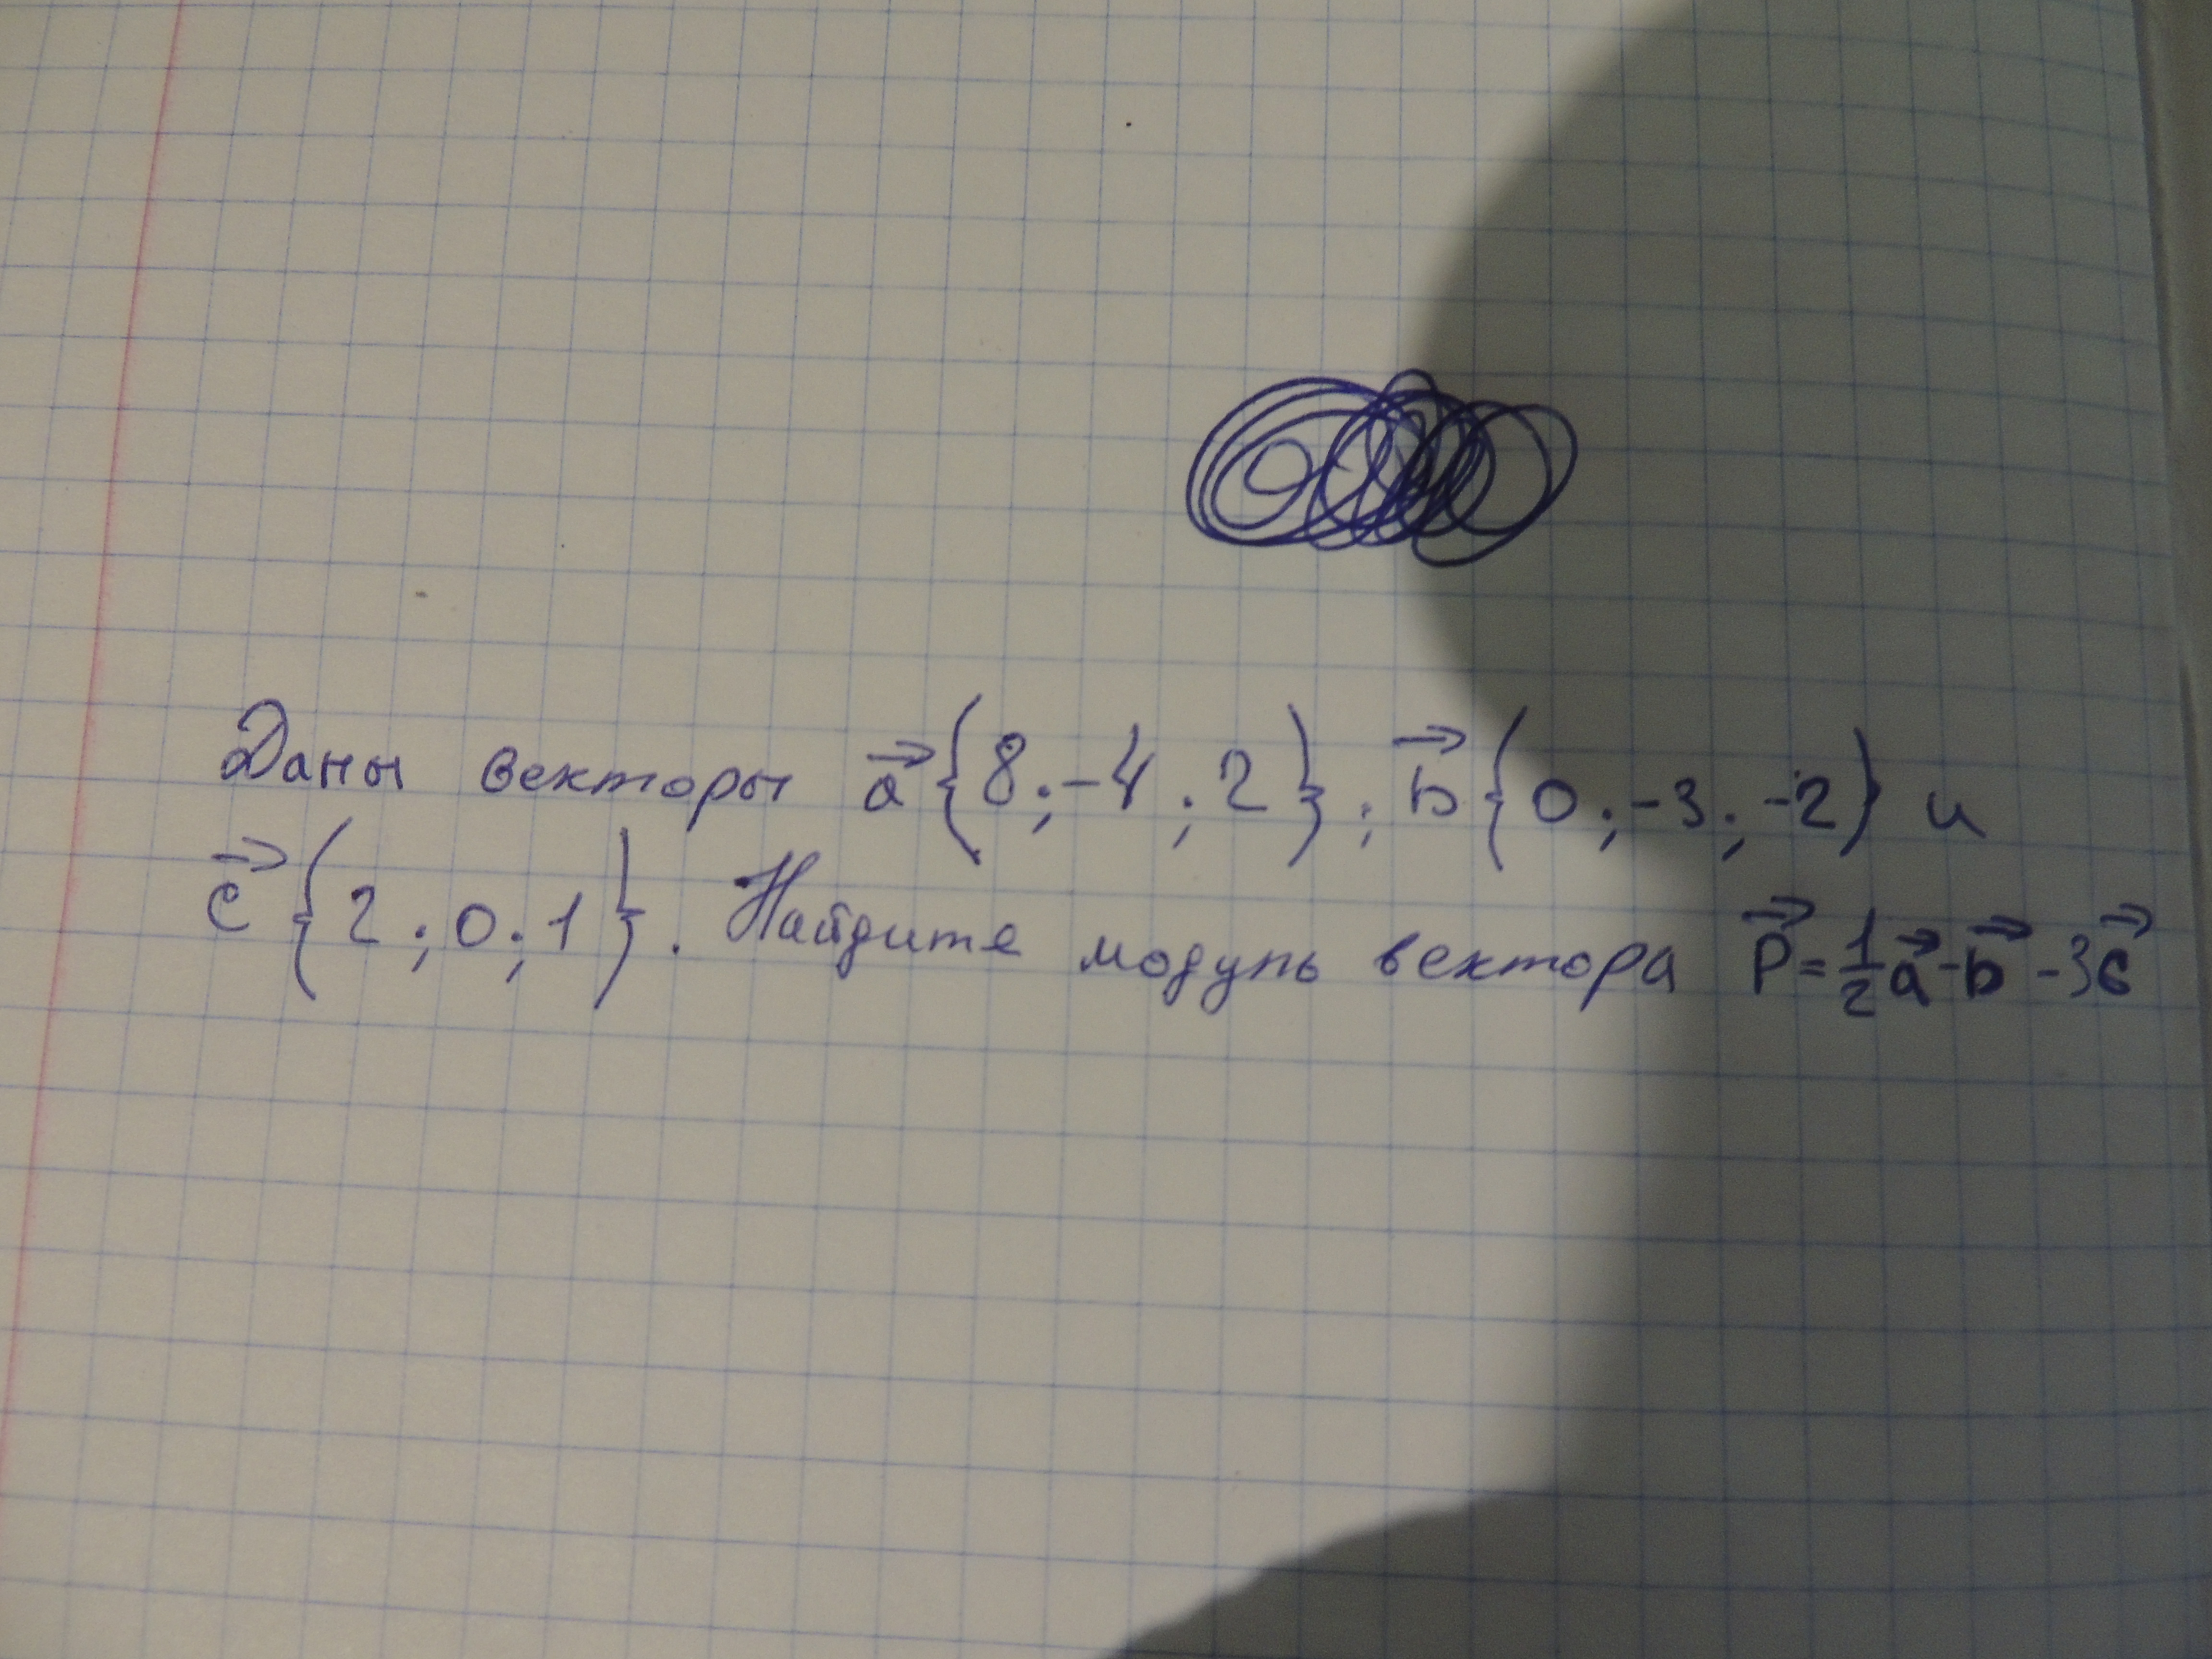 Даны векторы a⃗{8;-4;2}; b⃗{0;-3;-2} и
c⃗{2;0;1}. Найдите модуль вектора p⃗=½a⃗-b⃗-3c⃗